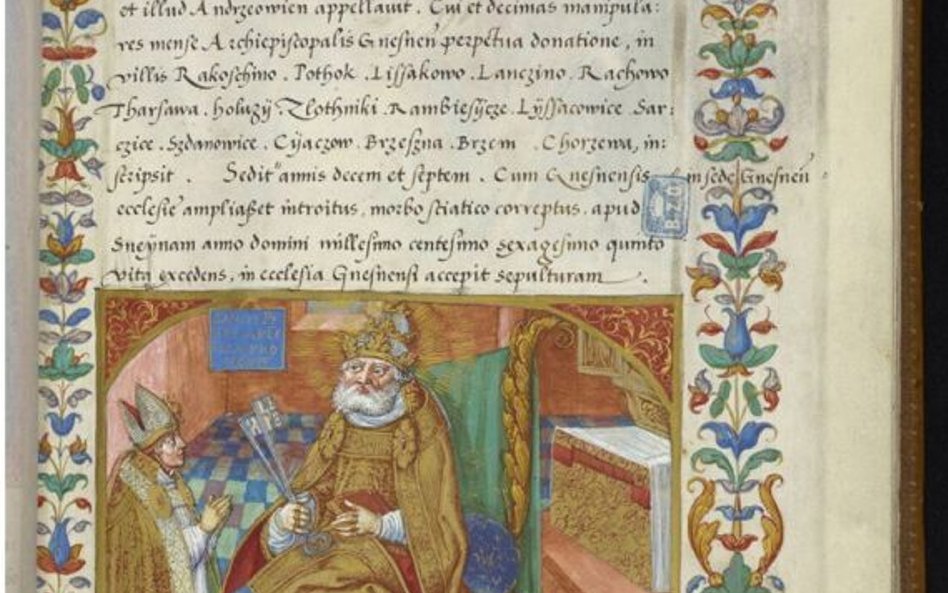 et illud Andrzeowien appellauit. Cui et decimas manipula:
res mense Archiepiscopalis Gnesnen̄ perpetua donatione, in
villis Rakoschino. Pothok. Lissakowo. Lanczino. Rachowo
Tharsawa. holuzÿ. Zlothniki. Rambiesÿcze. Lÿssacowice. Sar:
czice. Szdanowice. Cÿaczow. Brzeszna. Brzem. Chorzewa, in:
scripsit. Sedit annis decem et septem. Cum Gnesnensis in sede Gnesnen̄
ecclesie ampliasset introitus, morbo sciatico correptus, apud
Sneÿnam anno domini millesimo centesimo sexagesimo quinto
vita excedens, in ecclesia Gnesnensi accepit sepulturam.